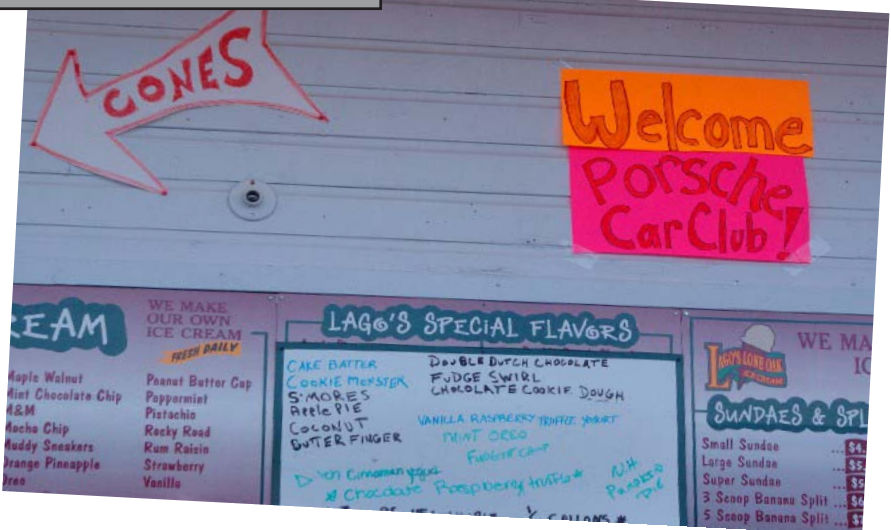 CONES
Welcome
Porsche
Car Club!
EAM
WE MAKE
OUR OWN
ICE CREAM
FRESH DAILY
Maple Walnut
Mint Chocolate Chip
M&M
Mocha Chip
Muddy Sneakers
Orange Pineapple
Oreo
Peanut Butter Cup
Peppermint
Pistachio
Rocky Road
Rum Raisin
Strawberry
Vanilla
LAGO'S SPECIAL FLAVORS
CAKE BATTER
COOKIE MONSTER
S'MORES
Apple PIE
COCONUT
BUTTER FINGER
DOUBLE DUTCH CHOCOLATE
FUDGE SWIRL
CHOCOLATE COOKIE DOUGH
VANILLA RASPBERRY TRUFFLE YOGURT
MINT OREO
FUDGE CHIP
Cinnamon
* Chocolate Raspberry truffle *
N.H.
Pumpkin
Pie
GALLONS *
LAGO'S LONE OAK
ICE CREAM
WE MA
IC
SUNDAES & SPL
Small Sundae ... $4.
Large Sundae ... $5.
Super Sundae ... $5
3 Scoop Banana Split ... $6
5 Scoop Banana Split ... $7